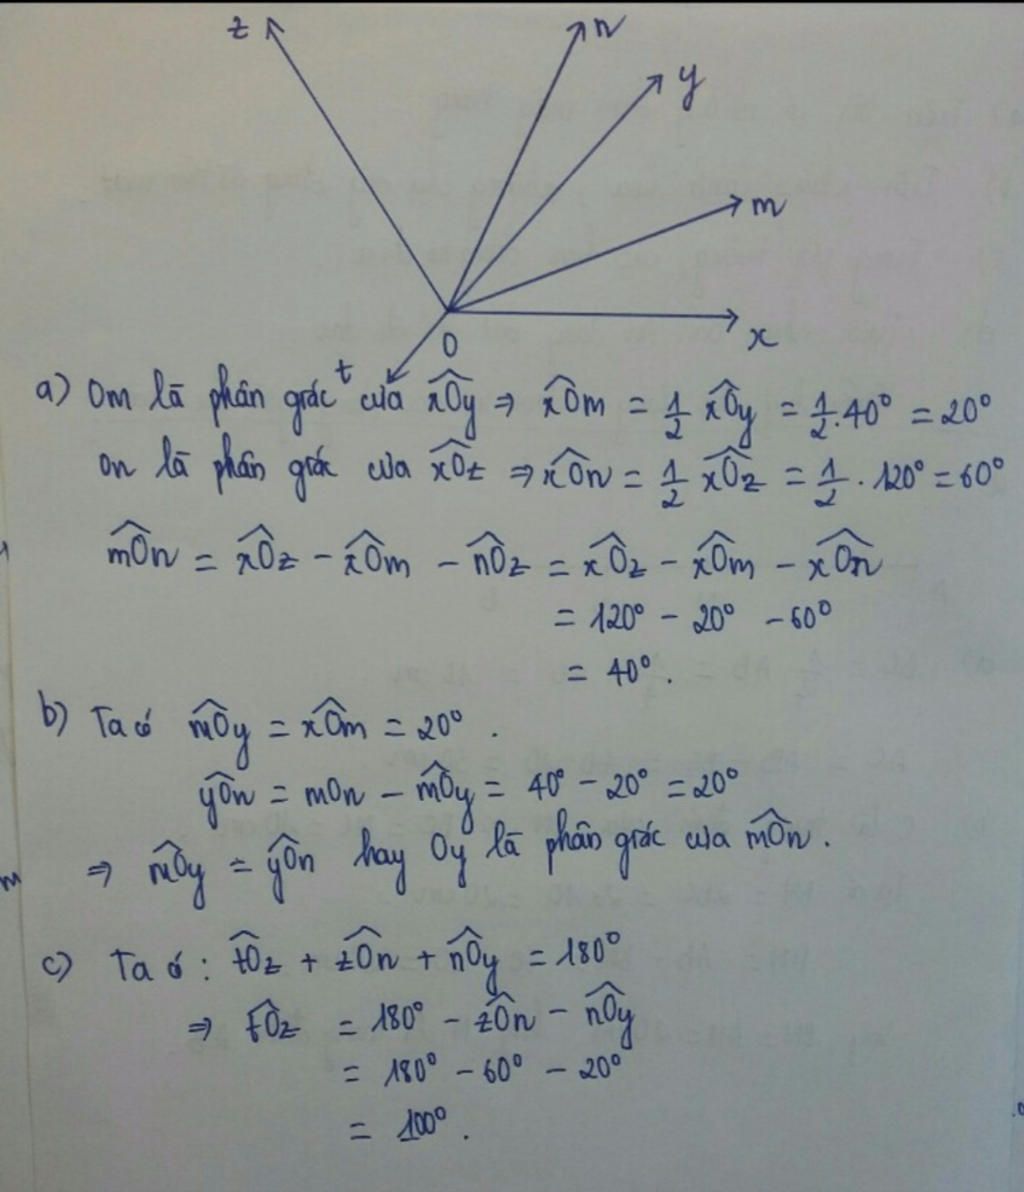 z
n
y
m
x
O
t
a) Om là phân giác của x̂Oy ⇒ x̂Om = 1/2 x̂Oy = 1/2 . 40° = 20°
On là phân giác của x̂Oz ⇒ x̂On = 1/2 x̂Oz = 1/2 . 120° = 60°
m̂On = x̂Oz - x̂Om - n̂Oz = x̂Oz - x̂Om - x̂On
= 120° - 20° - 60°
= 40°.
b) Ta có m̂Oy = x̂Om = 20°.
ŷOn = mOn - m̂Oy = 40° - 20° = 20°
⇒ m̂Oy = ŷOn hay Oy là phân giác của m̂On.
c) Ta có : t̂Oz + ẑOn + n̂Oy = 180°
⇒ t̂Oz = 180° - ẑOn - n̂Oy
= 180° - 60° - 20°
= 100°.